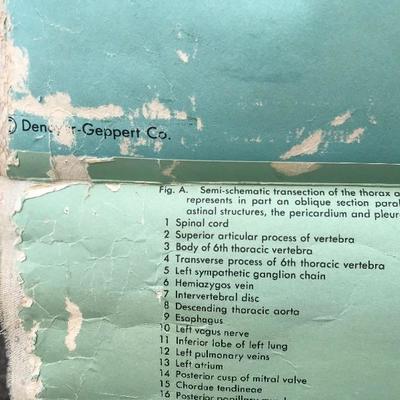 © Denoyer-Geppert Co.
Fig. A. Semi-schematic transection of the thorax
represents in part an oblique section
astinal structures, the pericardium and
1 Spinal cord
2 Superior articular process of vertebra
3 Body of 6th thoracic vertebra
4 Transverse process of 6th thoracic vertebra
5 Left sympathetic ganglion chain
6 Hemiazygos vein
7 Intervertebral disc
8 Descending thoracic aorta
9 Esophagus
10 Left vagus nerve
11 Inferior lobe of left lung
12 Left pulmonary veins
13 Left atrium
14 Posterior cusp of mitral valve
15 Chordae tendineae
16 Posterior papillary